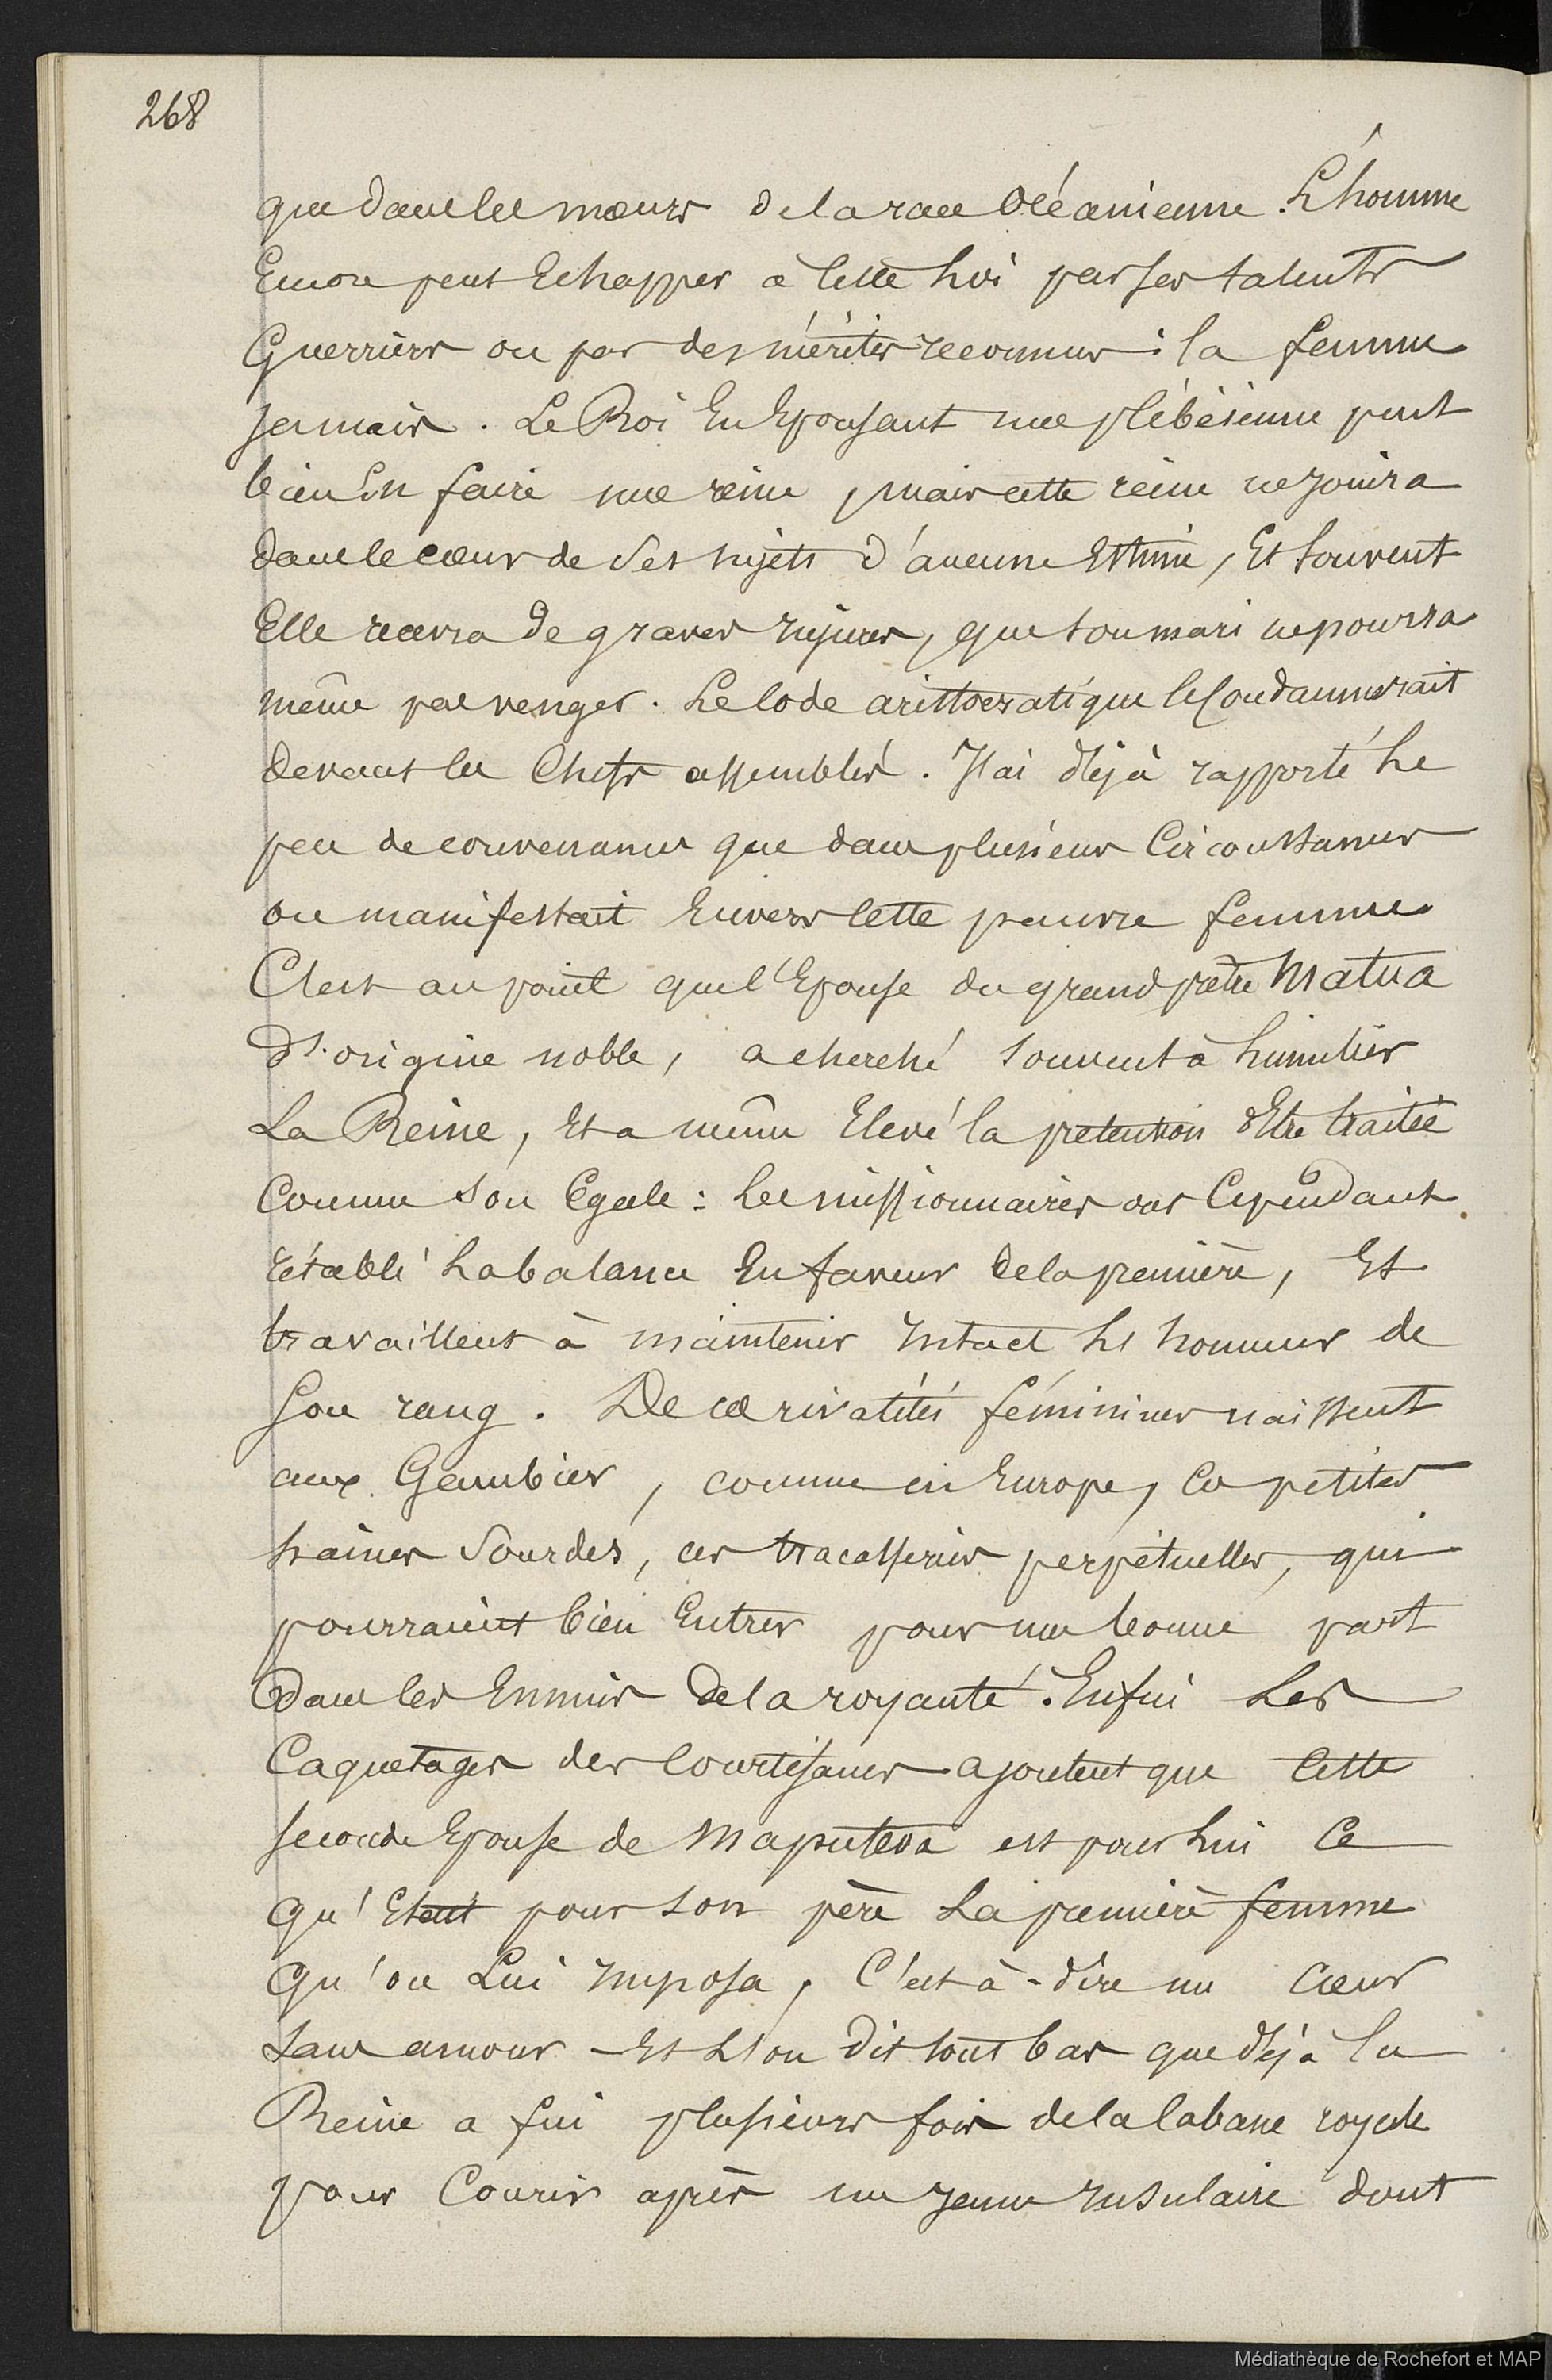 268
que dans les mœurs de la race Océanienne. L'homme
Encore peut Echapper à Cette Loi par ses talents
Guerriers ou par des mérites reconnus : la femme
jamais. Le Roi En Epousant une plébéienne peut
bien En faire une reine, mais cette reine ne jouira
dans le cœur de ses sujets d'aucune Estime, Et souvent
Elle recevra de graves injures, que son mari ne pourra
même pas venger. Le Code aristocratique le Condamnerait
devant les Chefs assemblés. J'ai déjà rapporté Le
peu de convenances que dans plusieurs Circonstances
on manifestait Envers Cette pauvre femme
C'est au point que l'Epouse du grand prêtre Matua
d'origine noble, a cherché souvent à humilier
La Reine, Et a même Elevé la prétention d'Etre traitée
Comme son Egale : Les missionnaires ont Cependant
rétabli La balance En faveur de la première, Et
travaillent à maintenir Intact les honneurs de
son rang. De ces rivalités féminines naissent
aux Gambier, comme en Europe, ces petites
haines sourdes, ces tracasseries perpétuelles, qui
pourraient bien Entrer pour une bonne part
dans les Ennuis de la royauté. Enfin Les
Caquetages des Courtisanes ajoutent que Cette
seconde Epouse de Maputeoa est pour Lui Ce
qu'Etait pour son père La première femme
qu'on Lui Imposa, C'est-à-dire un Cœur
sans amour - Et L'on dit tout bas que déjà la
Reine a fui plusieurs fois de la Cabane royale
pour Courir après un jeune Insulaire dont
Médiathèque de Rochefort et MAP